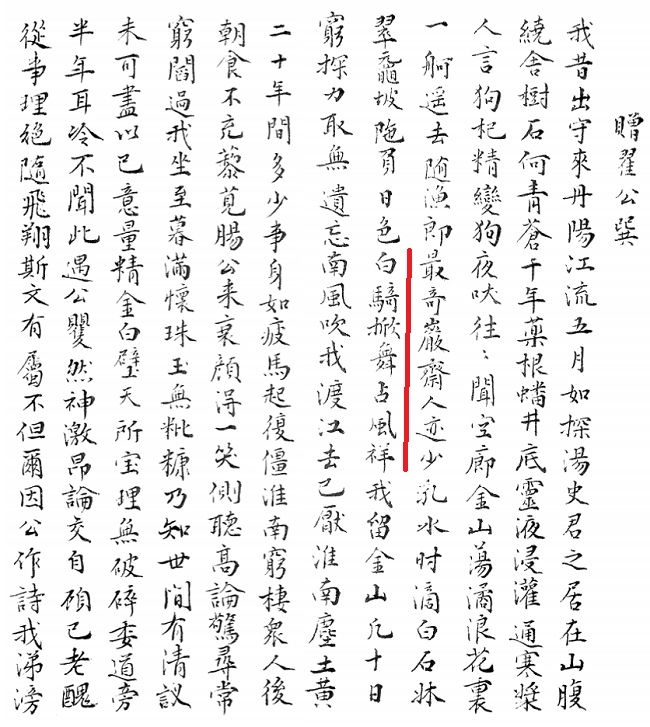 贈翟公巽
我昔出守來丹陽江流五月如探湯史君之居在山腹
繞舍樹石何青蒼千年藥根蟠井底靈液浸灌通寒漿
人言狗杞精變狗夜吠往〻聞空廊金山蕩潏浪花裏
一舸遥去随漁郎最奇巖齋人迹少乳水时滴白石牀
翠黿坡陁負日色白鷸掀舞占風祥我留金山凢十日
窮探力取無遺忘南風吹我渡江去已厭淮南塵土黄
二十年間多少事身如疲馬起復僵淮南窮棲衆人後
朝食不充藜莧腸公来衰顔得一笑側聽高論驚尋常
窮閻過我坐至暮滿懷珠玉無粃糠乃知世間有清議
未可盡以已意量精金白璧天所宝理無破碎委道旁
半年耳冷不聞此遇公矍然神激昂論交自顧已老醜
從事理絶随飛翔斯文有屬不但爾因公作詩我涕滂